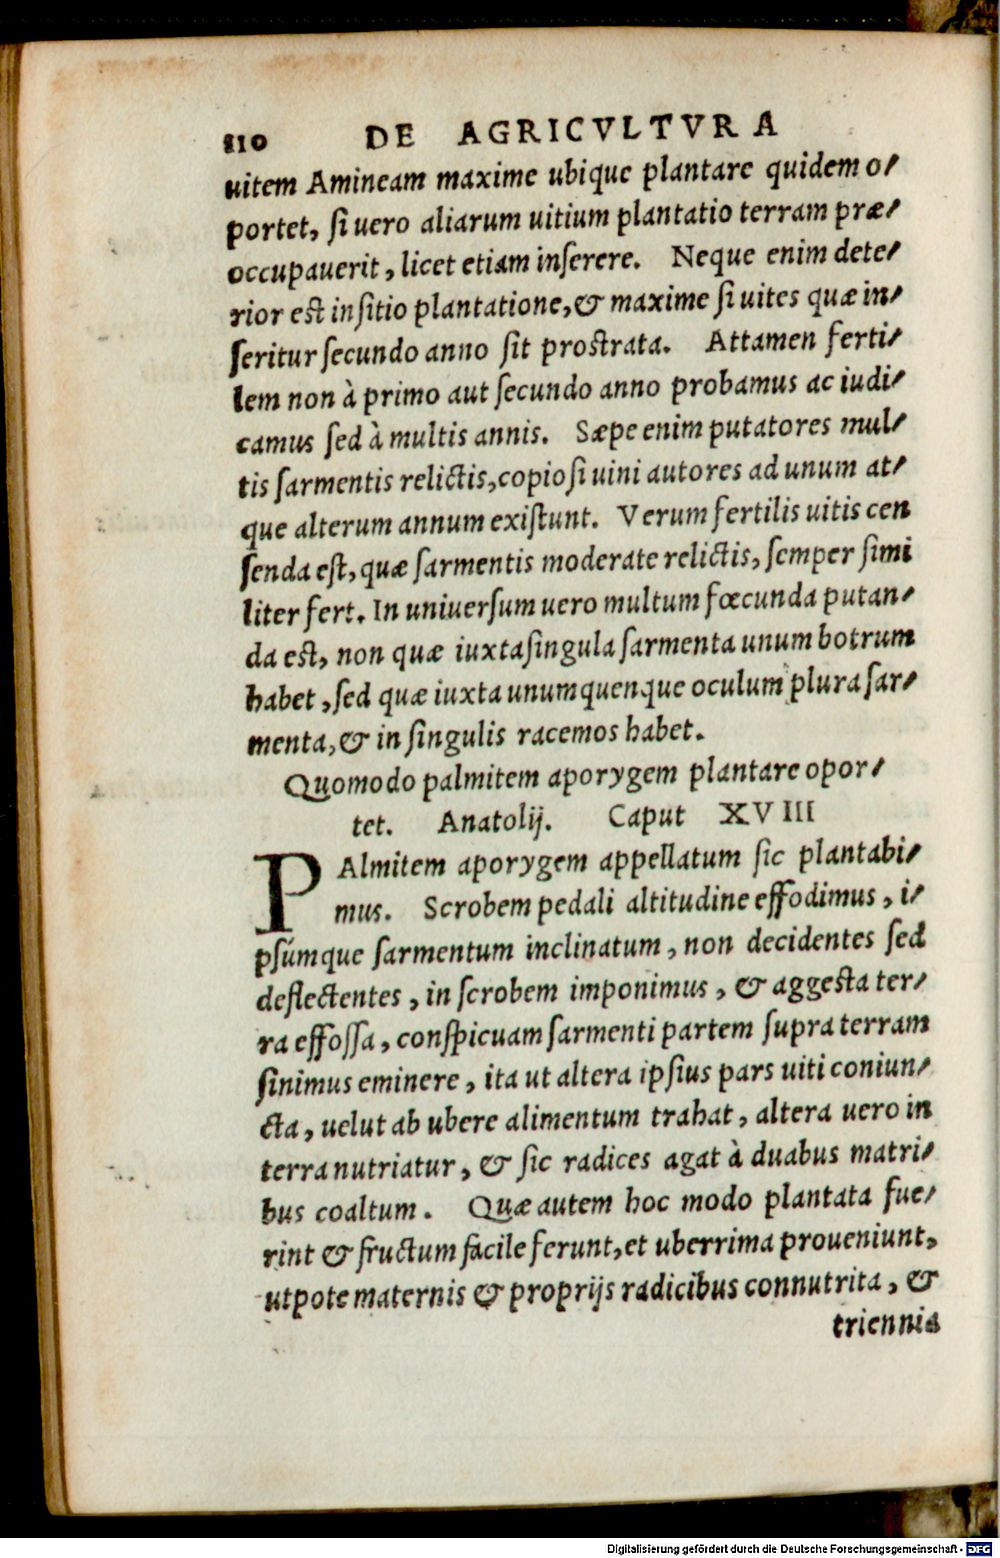 110 DE AGRICVLTVRA
uitem Amineam maxime ubique plantare quidem o-
portet, si uero aliarum uitium plantatio terram præ-
occupauerit, licet etiam inserere. Neque enim dete-
rior est insitio plantatione, & maxime si uites quæ in-
seritur secundo anno sit prostrata. Attamen ferti-
lem non à primo aut secundo anno probamus ac iudi-
camus sed à multis annis. Sæpe enim putatores mul-
tis sarmentis relictis, copiosi uini autores ad unum at-
que alterum annum existunt. Verum fertilis uitis cen
senda est, quæ sarmentis moderate relictis, semper simi
liter fert. In uniuersum uero multum fœcunda putan-
da est, non quæ iuxta singula sarmenta unum botrum
habet, sed quæ iuxta unumquenque oculum plura sar-
menta, & in singulis racemos habet.
Quomodo palmitem aporygem plantare opor-
tet. Anatolij. Caput XVIII
PAlmitem aporygem appellatum sic plantabi-
mus. Scrobem pedali altitudine effodimus, i-
psumque sarmentum inclinatum, non decidentes sed
deflectentes, in scrobem imponimus, & aggesta ter-
ra effossa, conspicuam sarmenti partem supra terram
sinimus eminere, ita ut altera ipsius pars uiti coniun-
cta, uelut ab ubere alimentum trahat, altera uero in
terra nutriatur, & sic radices agat à duabus matri-
bus coaltum. Quæ autem hoc modo plantata fue-
rint & fructum facile ferunt, et uberrima proueniunt,
utpote maternis & proprijs radicibus connutrita, &
triennia
Digitalisierung gefördert durch die Deutsche Forschungsgemeinschaft - DFG